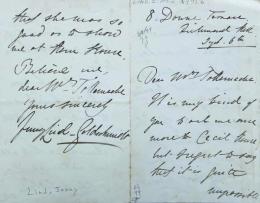 8. Downe Terrace
Richmond Hill
Sept. 6th
Dear Mrs Tollemache
It is very kind of
you to ask me once
more to Cecil House
but I regret to say
that it is quite
impossible
that she was so
good as to show
me at Ham House.
Believe me,
dear Mrs Tollemache
yours sincerely
Jenny Lind-Goldschmidt
Lind, Jenny